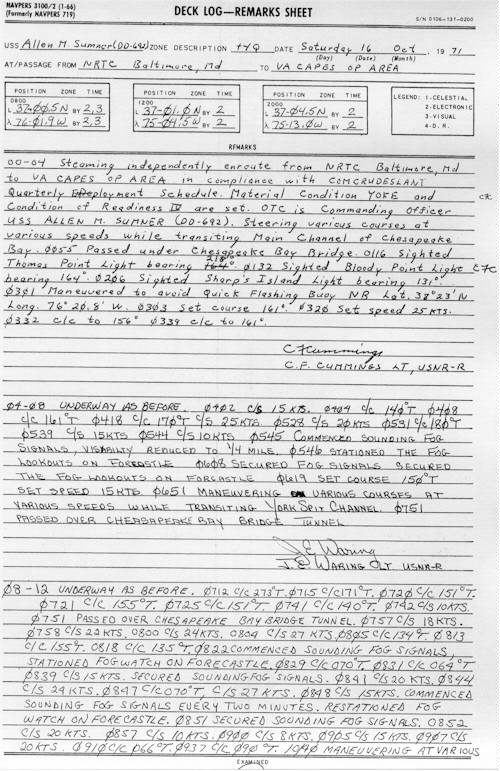 NAVPERS 3100/2 (1-66)
(Formerly NAVPERS 719)
DECK LOG—REMARKS SHEET
S/N 0106-131-0200
USS Allen M. Sumner (DD-692) ZONE DESCRIPTION +4Q DATE Saturday 16 Oct , 19 71
(Day) (Date) (Month)
AT/PASSAGE FROM NRTC Baltimore, Md TO VA CAPES OP AREA
POSITION ZONE TIME
0800
L 37-ØØ.5N BY 2,3
λ 76-Ø1.9W BY 2,3
POSITION ZONE TIME
1200
L 37-Ø1.ØN BY 2
λ 75-Ø4.5W BY 2
POSITION ZONE TIME
2000
L 37-Ø4.5N BY 2
λ 75-13.ØW BY 2
LEGEND: 1-CELESTIAL
2-ELECTRONIC
3-VISUAL
4-D.R.
REMARKS
00-04 Steaming independently enroute from NRTC Baltimore, Md
to VA CAPES OP AREA in compliance with COMCRUDESLANT
Quarterly Deployment Schedule. Material Condition YOKE and
Condition of Readiness IV are set. OTC is Commanding Officer
USS ALLEN M. SUMNER (DD-692). Steering various courses at
various speeds while transiting Main Channel of Chesapeake
Bay. ØØ55 Passed under Chesapeake Bay Bridge. Ø116 Sighted
Thomas Point Light bearing 218°. Ø132 Sighted Bloody Point Light CFC
bearing 164°. Ø2Ø6 Sighted Sharp's Island Light bearing 131°.
Ø3Ø1 Maneuvered to avoid Quick Flashing Buoy NR Lat. 38°23'N
Long. 76°2Ø.8'W. Ø3Ø3 Set course 161°. Ø32Ø Set speed 25 KTS.
Ø332 C/c to 156° Ø339 c/c to 161°.
C F Cummings
C.F. CUMMINGS LT, USNR-R
Ø4-Ø8 UNDERWAY AS BEFORE. Ø4Ø2 C/S 15 KTS. Ø4Ø4 C/C 14Ø°T Ø4Ø8
C/C 161°T Ø418 C/C 17Ø°T C/S 25KTS Ø528 C/S 2ØKTS Ø531 C/C 18Ø°T
Ø539 C/S 15KTS Ø544 C/S 10KTS Ø545 COMMENCED SOUNDING FOG
SIGNALS, VISABILTY REDUCED TO 1/4 MILE. Ø546 STATIONED THE FOG
LOOKOUTS ON FORCASTLE Ø6Ø8 SECURED FOG SIGNALS SECURED
THE FOG LOOKOUTS ON FORCASTLE Ø619 SET COURSE 15Ø°T
SET SPEED 15KTS Ø651 MANEUVERING ON VARIOUS COURSES AT
VARIOUS SPEEDS WHILE TRANSITING YORK SPIT CHANNEL. Ø751
PASSED OVER CHEASAPEAKE BAY BRIDGE TUNNEL
J. E. Waring
J. E. WARING LT. USNR-R
Ø8-12 UNDERWAY AS BEFORE. Ø712 C/C 273°T. Ø715 C/C 171°T. Ø72Ø C/C 151°T.
Ø721 C/C 155°T. Ø725 C/C 151°T. Ø741 C/C 140°T. Ø742 C/S 10KTS.
Ø751 PASSED OVER CHESAPEAKE BAY BRIDGE TUNNEL. Ø757 C/S 18KTS.
Ø758 C/S 22KTS, 0800 C/S 24KTS. 0804 C/S 27 KTS, Ø8Ø5 C/C 134°T. Ø813
C/C 155°T. 0818 C/C 135°T, Ø822 COMMENCED SOUNDING FOG SIGNALS,
STATIONED FOG WATCH ON FORECASTLE. Ø829 C/C 070°T, Ø831 C/C 064°T
Ø839 C/S 15KTS. SECURED SOUNDING FOG SIGNALS. Ø841 C/S 20 KTS. Ø844
C/S 24 KTS. Ø847 C/C 070°T, C/S 27 KTS. Ø848 C/S 15KTS. COMMENCED
SOUNDING FOG SIGNALS EVERY TWO MINUTES. RESTATIONED FOG
WATCH ON FORECASTLE. Ø851 SECURED SOUNDING FOG SIGNALS. 0852
C/S 20 KTS. Ø857 C/S 10KTS. Ø9ØØ C/S 8KTS, Ø9Ø5 C/S 15 KTS. Ø9Ø7 C/S
20KTS. Ø91Ø C/C Ø66°T. Ø937 C/C Ø9Ø°T. 1Ø4Ø MANEUVERING AT VARIOUS
EXAMINED